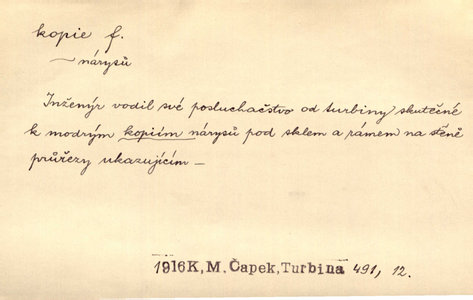 kopie f.
~ nárysů
Inženýr vodil své posluchačstvo od turbiny skutečné
k modrým kopiím nárysů pod sklem a rámem na stěně
průřezy ukazujícím –
1916K, M. Čapek, Turbina 491, 12.